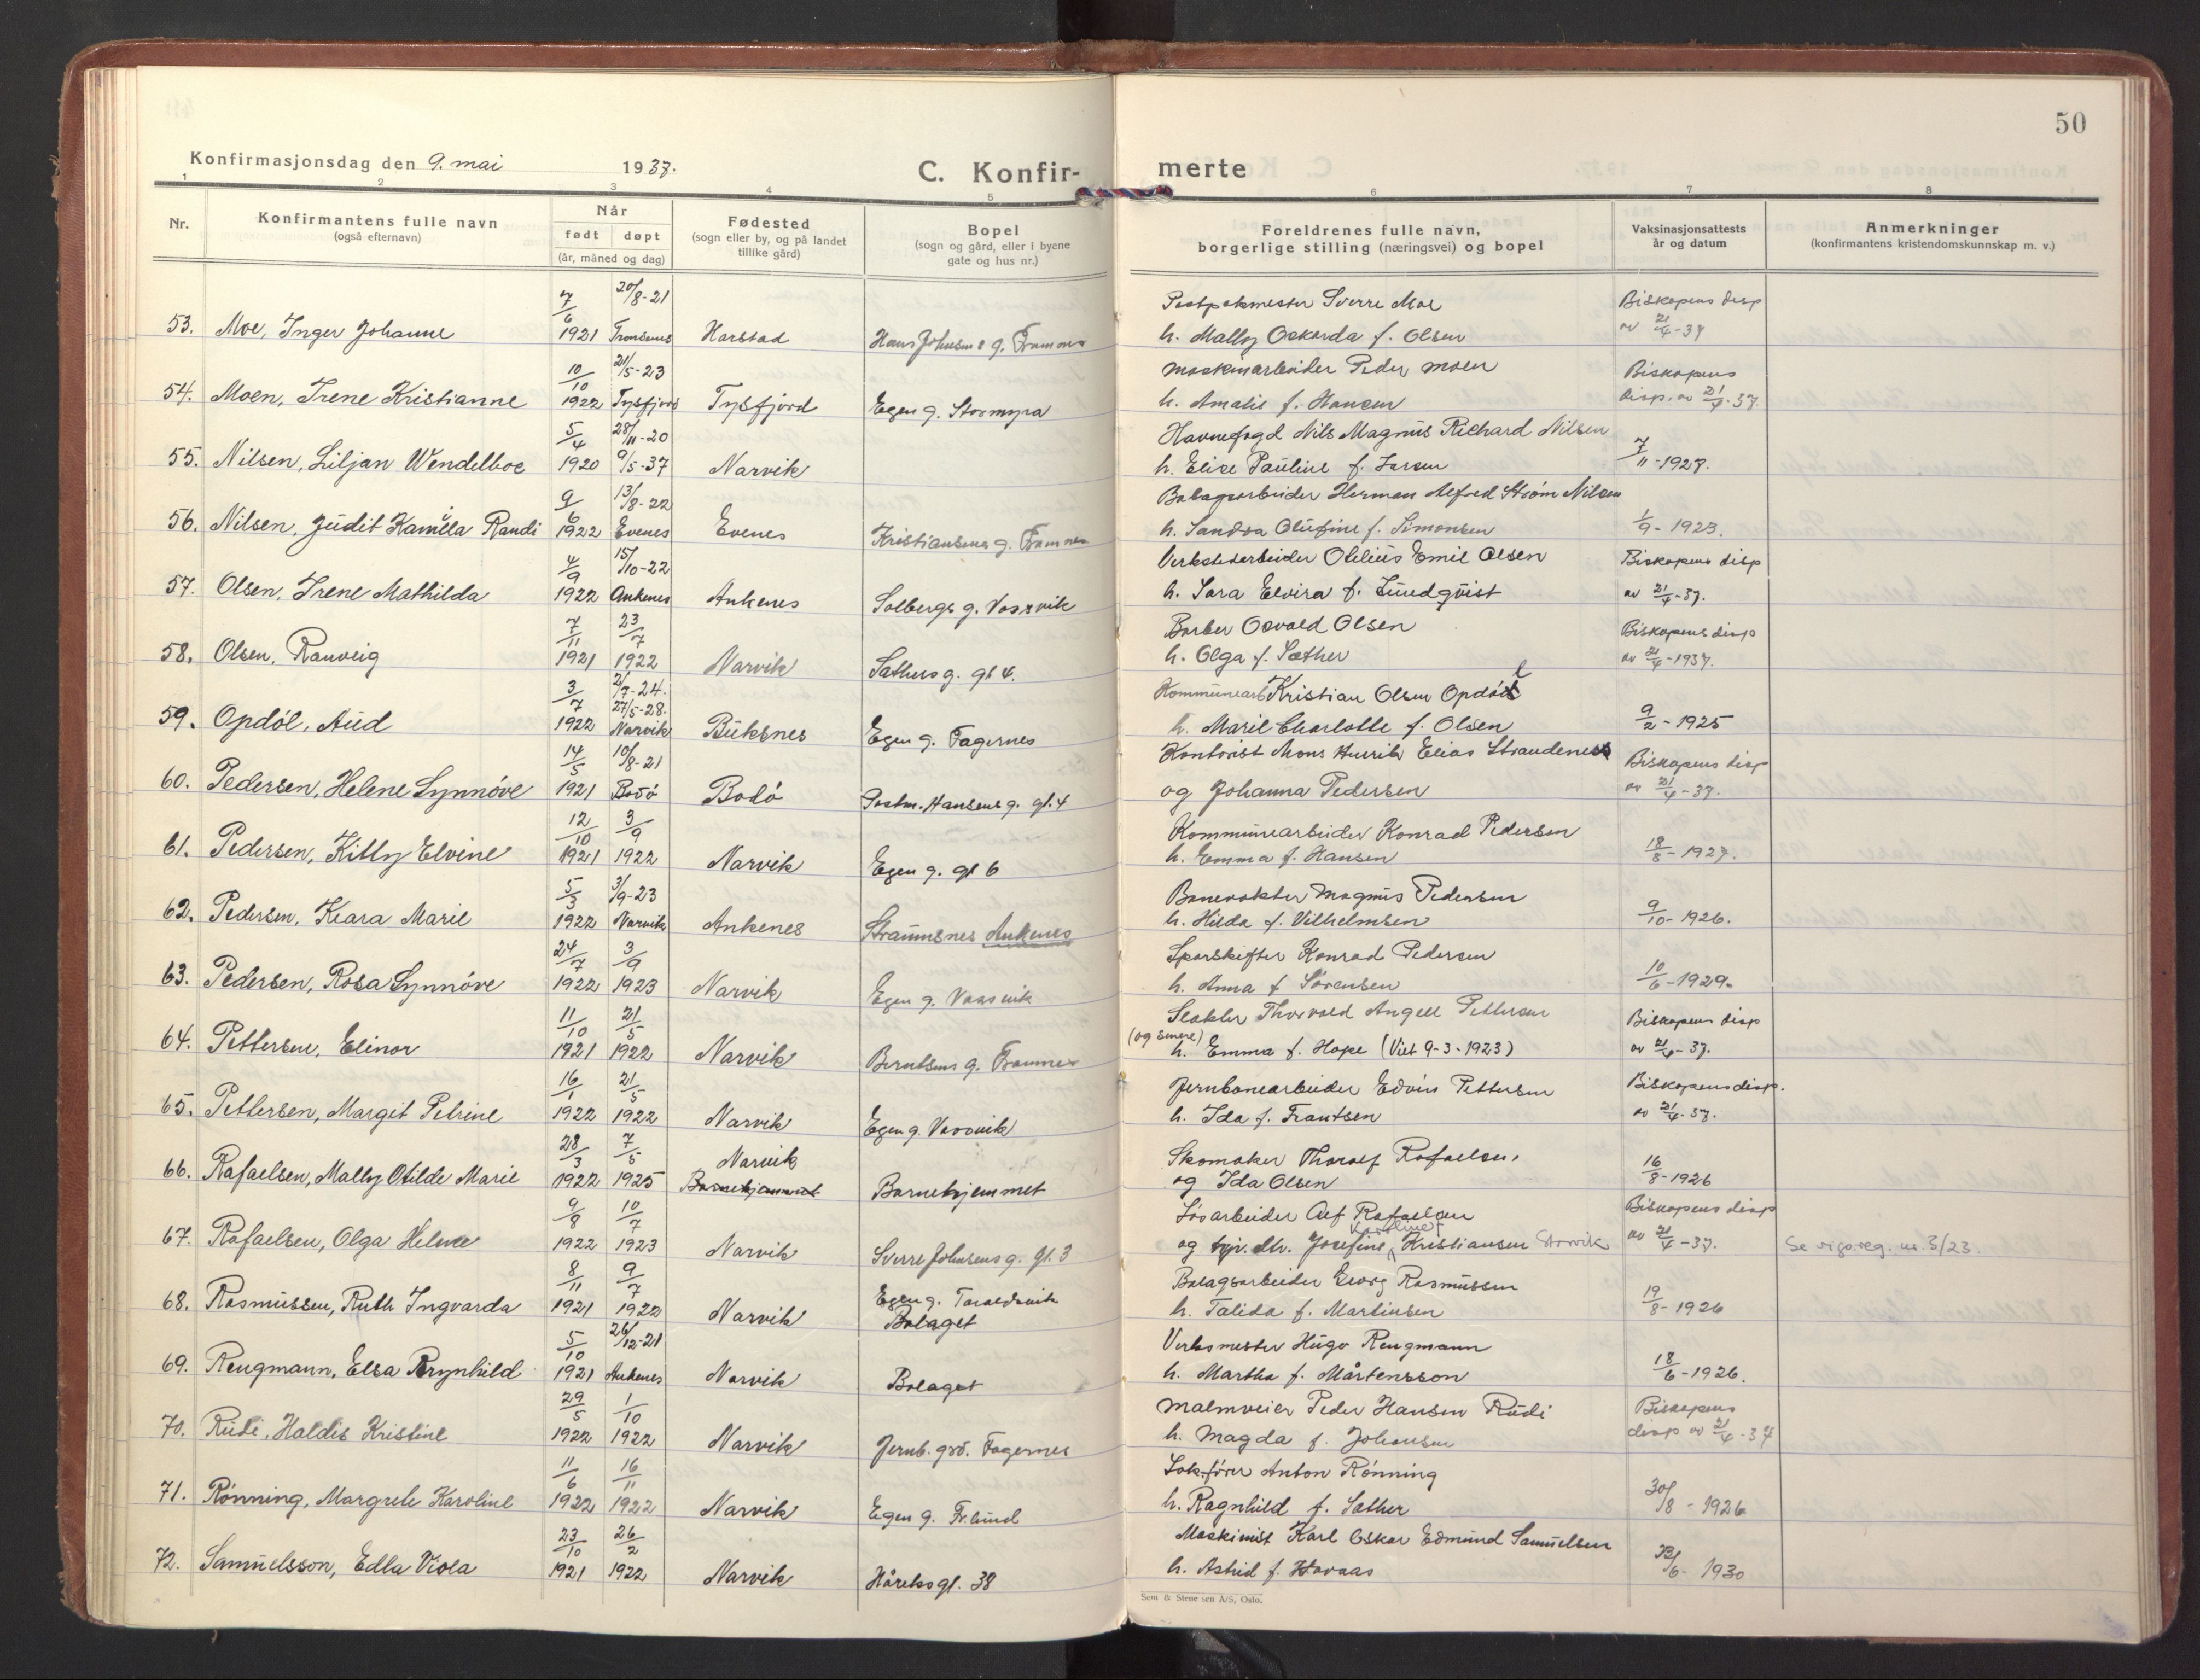 50
Konfirmasjonsdag den 9. mai 1937. C. Konfir- merte
1 2 3 4 5 6 7 8
Nr.
Konfirmantens fulle navn
(også efternavn)
Når
født døpt
(år, måned og dag)
Fødested
(sogn eller by, og på landet
tillike gård)
Bopel
(sogn og gård, eller i byene
gate og hus nr.)
Foreldrenes fulle navn,
borgerlige stilling (næringsvei) og bopel
Vaksinasjonsattests
år og datum
Anmerkninger
(konfirmantens kristendomskunnskap m. v.)
7/6 20/8-21 Sverre Moe Biskopens disp
53. Moe, Inger Johanne 1921 Harstad Hans Johnsens g. Framnes h. Mally f. Olsen av 21/4-37
10/10 21/5-23 Maskinarbeider Peder Moen Biskopens
54. Moen, Irene Kristianne 1922 Tysfjord Tysfjord Egen g. Stormyra h. Amalie f. Hansen disp. av 21/4-37.
5/4 28/11-20 Havnefogd Nils Magnus Richard Nilsen
55. Nilsen, Liljan Wendelboe 1920 9/5-37 Narvik h. Elise Pauline f. Larsen 7/11-1927.
9/6 13/8-22 Bolagsarbeider Herman Alfred Strøm Nilsen
56. Nilsen, Judit Kamilla Randi 1922 Evenes Evenes Kristiansens g. Framnes h. Sandra Olufine f. Simonsen 1/9-1923.
4/9 15/10-22 Verkstedarbeider Otelius Emil Olsen Biskopens disp
57. Olsen, Irene Mathilda 1922 Ankenes Ankenes Solbergs g. Vassvik h. Sara Elvira f. Lundqvist av 21/4-37.
7/11 23/7 Barber Osvald Olsen Biskopens disp
58. Olsen, Ranveig 1921 1922 Narvik Sæthers g. gt 4. h. Olga f. Sæther av 21/4-1937.
3/7 2/7-24. 27/5-28. Kommunearb Kristian Olsen Opdøl
59. Opdøl, Aud 1922 Narvik Buksnes Egen g. Fagernes h. Marie Charlotte f. Olsen 9/2-1925
14/5 10/8-21 Kontorist Mons Henrik Elias Strandenes Biskopens disp
60. Pedersen, Helene Synnøve 1921 Bodø Bodø Postm. Hansens g. gt. 4 og Johanna Pedersen av 21/4-37.
12/10 3/9 Kommunearbeider Konrad Pedersen
61. Pedersen, Kitty Elvine 1921 1922 Narvik Egen g. gt 6 h. Emma f. Hansen 18/8-1927.
5/3 3/9-23 Banevokter Magnus Pedersen
62. Pedersen, Klara Marie 1922 Narvik Ankenes Straumsnes Ankenes h. Hilda f. Vilhelmsen 9/10-1926.
24/7 3/9 Sporskifter Konrad Pedersen
63. Pedersen, Rosa Synnøve 1922 1923 Narvik Egen g. Vassvik h. Anna f Sørensen 10/6-1929.
11/10 21/5 Slakter Thorvald Angell Pettersen Biskopens disp
64. Pettersen, Elinor 1921 1922 Narvik Berntsens g. Framnes (og senere) h. Emma f. Hope (Viet 9-3-1923) av 21/4-37.
16/1 21/5 Jernbanearbeider Edvin Pettersen Biskopens disp.
65. Pettersen, Margit Petrine 1922 1922 Narvik Egen g. Vassvik h. Ida f. Frantsen av 21/4-37.
28/3 7/5 Narvik Skomaker Tharalf Rafaelsen,
66. Rafaelsen, Mally Otilde Marie 1922 1925 Barnehjemmet Barnehjemmet og Ida Olsen 16/8-1926
9/8 10/7 Løsarbeider Alf Rafaelsen Biskopens disp
67. Rafaelsen, Olga Helene 1922 1923 Narvik Sverre Johnsens g. gt. 3 og tjp. Josefine Karoline Kristiansen av 21/4-37. Se reg. nr. 3/23
8/11 9/7 Egen g. Taraldsvik Bolagsarbeider Georg Rasmussen
68. Rasmussen, Ruth Ingvarda 1921 1922 Narvik Bolaget h. Talida f. Martinsen 19/8-1926
5/10 26/12-21 Verksmester Hugo Rengmann
69. Rengmann, Elsa Brynhild 1921 Ankenes Narvik Bolaget h. Martha f. Mårtensson 18/6-1926.
29/5 1/10 Malmveier Peder Hansen Rudi Biskopens
70. Rudi, Haldis Kristine 1922 1922 Narvik Jernb. grd. Fagernes h. Magda f. Johansen disp av 21/4-37
11/6 16/11 Lokfører Anton Rønning
71. Rønning, Margrete Karoline 1922 1922 Narvik Egen g. Frlund h. Ragnhild f. Sæther 30/8-1926
23/10 26/2 Maskinist Karl Oskar Edmund Samuelsen
72. Samuelsson, Edla Viola 1921 1922 Narvik Håreks gt. 38 h. Astrid f. Hovaas 23/6-1930
Sem & Stenersen A/S, Oslo.